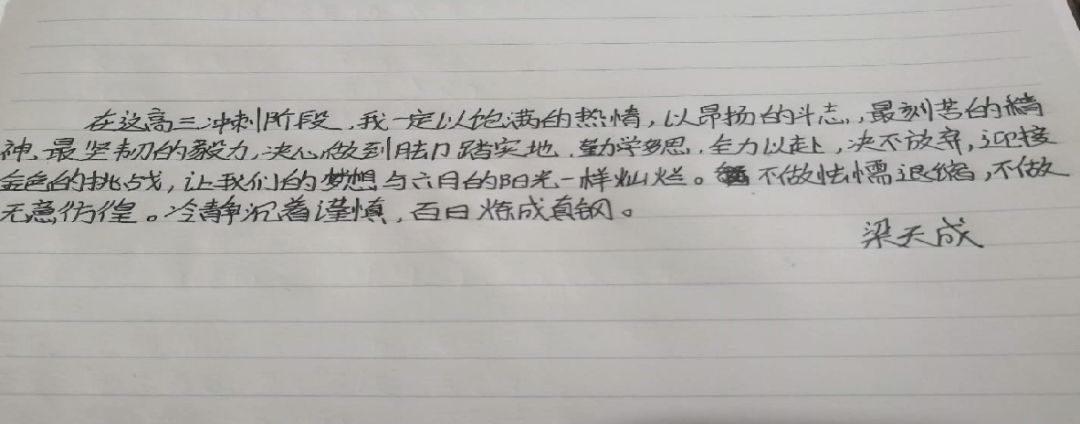 在这高三冲刺阶段,我一定以饱满的热情,以昂扬的斗志,最刻苦的精
神、最坚韧的毅力,决心做到脚踏实地、勤学多思,全力以赴,决不放弃,迎接
金色的挑战,让我们的梦想与六月的阳光一样灿烂。不做怯懦退缩,不做
无意彷徨。冷静沉着谨慎,百日炼成真钢。
梁天成